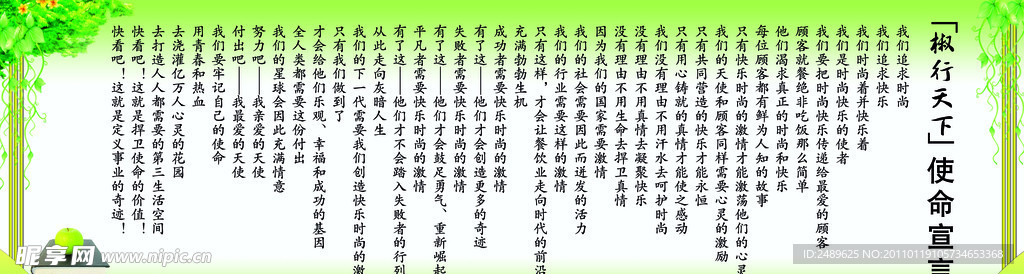 「椒行天下」使命宣言
我们追求时尚
我们追求快乐
我们时尚着并快乐着
我们是时尚快乐的使者
我们要把时尚快乐传递给最爱的顾客
顾客就餐绝非吃饭那么简单
他们渴求真正的时尚和快乐
每位顾客都有鲜为人知的故事
只有快乐时尚的激情才能激荡他们的心灵
我们的天使和顾客同样需要心灵的激励
只有共同营造的快乐才能永恒
只有用心铸就的真情才能使之感动
我们没有理由不用汗水去呵护时尚
没有理由不用真情去凝聚快乐
没有理由不用生命去捍卫真情
因为我们的国家需要激情
我们的社会需要因此而迸发的活力
我们的行业需要这样的激情
只有这样，才会让餐饮业走向时代的前沿
充满勃勃生机
成功者需要快乐时尚的激情
有了这——他们才会创造更多的奇迹
失败者需要快乐时尚的激情
有了这——他们才会鼓足勇气、重新崛起
平凡者需要快乐时尚的激情
有了这——他们才不会踏入失败者的行列
从此走向灰暗人生
我们的下一代需要我们创造快乐时尚的激
只有我们做到了
才会给他们乐观、幸福和成功的基因
全人类都需要这份付出
我们的星球会因此充满情意
努力吧——我亲爱的天使
付出吧——我最爱的天使
我们要牢记自己的使命
用青春和热血
去浇灌亿万人心灵的花园
去打造人人都需要的第三生活空间
快看吧！这就是捍卫使命的价值！
快看吧！这就是定义事业的奇迹！
昵享网 www.nipic.cn
ID:2489625 NO:20110119105734653368